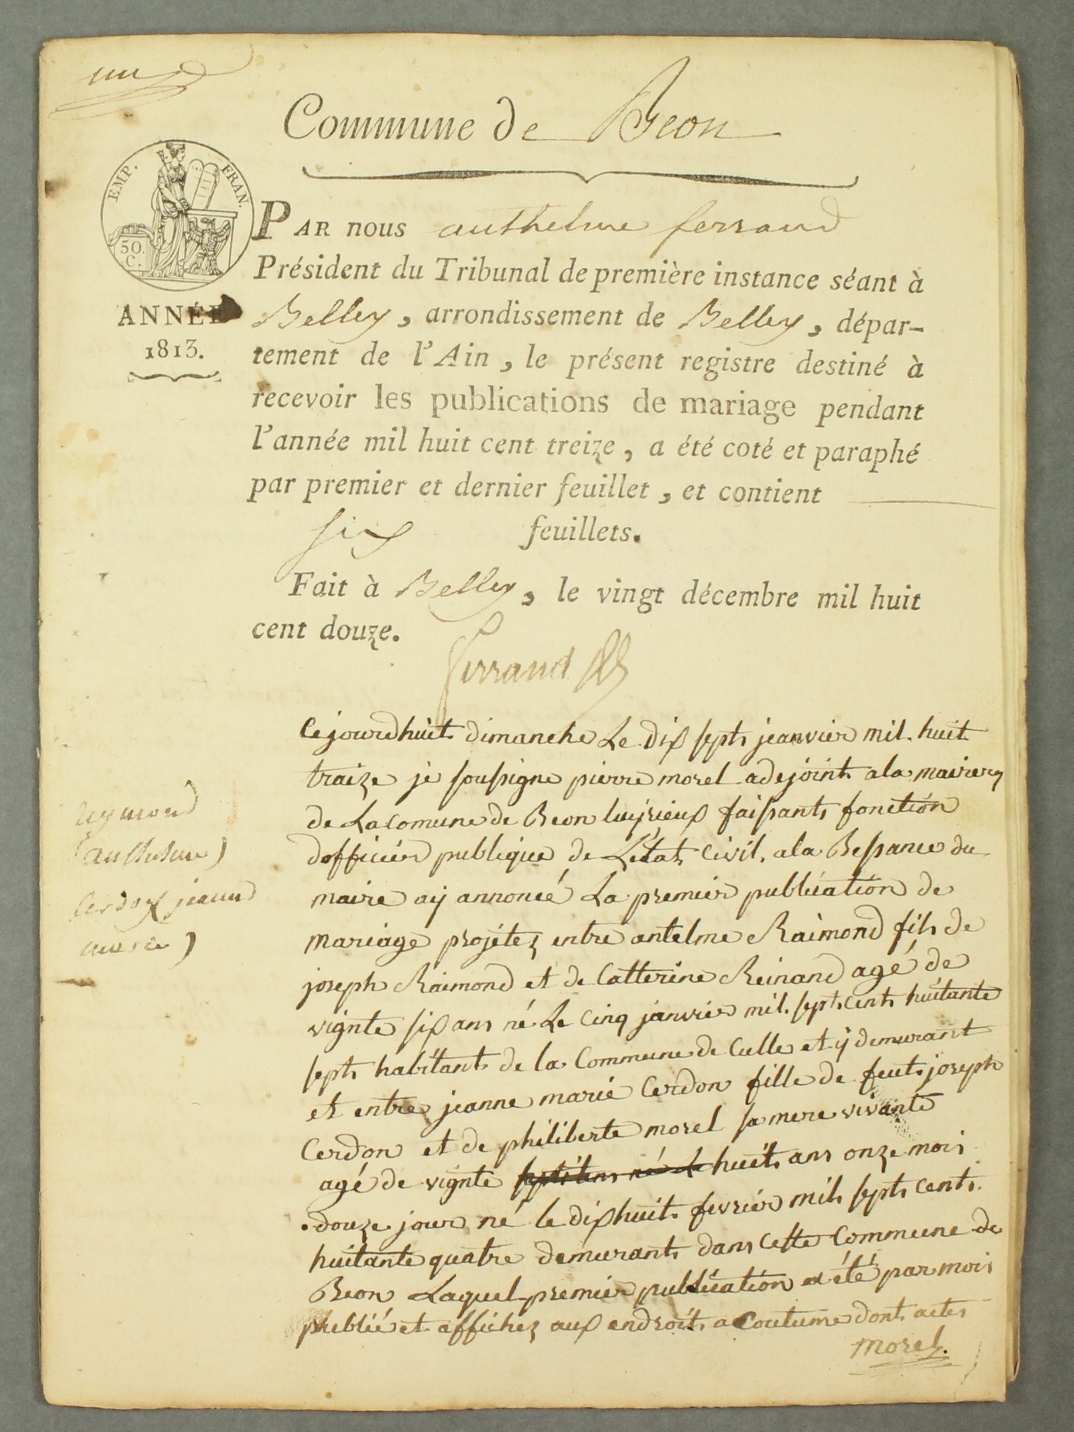 un
Commune de Beon
EMP. FRAN.
50. C.
ANNÉE
1813.
PAR nous anthelme ferrand
Président du Tribunal de première instance séant à
Belley, arrondissement de Belley, dépar-
tement de l'Ain, le présent registre destiné à
recevoir les publications de mariage pendant
l'année mil huit cent treize, a été coté et paraphé
par premier et dernier feuillet, et contient
six feuillets.
Fait à Belley, le vingt décembre mil huit
cent douze.
ferrand
Cejourdhuit dimanche Le dix sept jeanvier mil. huit
traize je soussigne pierre morel adejoint ala mairery
de La comune de Beon luyrieux faissant fonction
dofficier publique de Létat civil, ala Bessance du
maire aÿ annoncé La premier publication de
mariage projétez entre antelme Raimond fils de
joseph Raimond et de Catterine Reinand agé de
vignte six ans né Le cinq janvier mil. sept cent huitante
sept habitant de la Commune de Culle et ÿ demurant
et entre jeanne marie Cerdon fille de feut joseph
Cerdon et de philiberte morel sa mere vivante
agé de vignte huit ans onze mois
douze jour né le dixhuit fevrier mil sept cent
huitante quatre demurant dans cette Commune de
Beon Laquel premier publication et été par mois
publié et affichez aux endroit a Coutume dont actes
morel.
reymond
(anthelme)
Cerdon jeanne
marie)